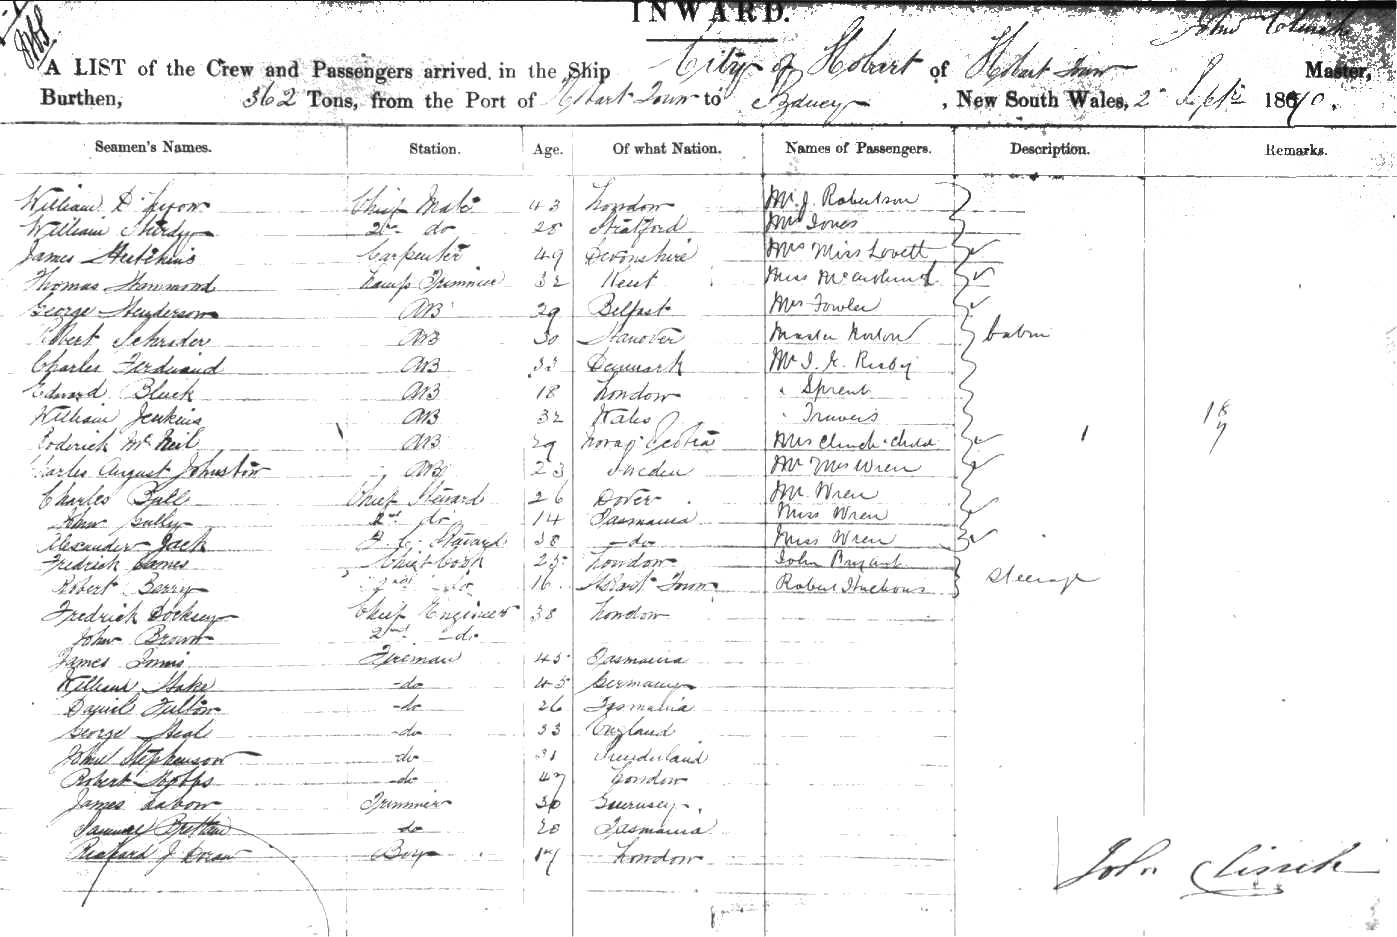 INWARD.
John Clinch
A LIST of the Crew and Passengers arrived in the Ship City of Hobart of Hobart Town Master,
Burthen, 362 Tons, from the Port of Hobart Town to Sydney, New South Wales, 2 Sept 1870.
Seamen's Names. Station. Age. Of what Nation. Names of Passengers. Description. Remarks.
William D. Lyon Chief Mate 43 London Mr J. Robertson
William Sturdy 2nd do 28 Stratford Mr Jones
James Hutchins Carpenter 49 Devonshire Mrs Miss Lovett
Thomas Hammond Lamp Trimmer 32 Kent Miss
George Henderson AB 29 Belfast Mrs Fowler
Robert Schrader AB 30 Hanover Master Norton Cabin
Charles Ferdinand AB 33 Denmark Mr I. G. Risby
Edward Black AB 18 London " Sprent
William Jenkins AB 32 Wales " Travers 18
Roderick McNeil AB 29 Nova Scotia Mrs Clinch & child 1 7
Charles August Johnston AB 23 Sweden Mr Mrs Wren
Charles Ball Chief Steward 26 Dover Mr Wren
John Gully 2nd do 14 Tasmania Miss Wren
Alexander Jack F. C. Steward 38 do Miss Wren
Fredrick James Chief Cook 25 London John Bryant
Robert Berry 2nd do 16 Hobart Town Robert Steerage
Fredrick Docksey Chief Engineer 38 London
John Brown 2nd do
James Innis Fireman 45 Tasmania
William Hake do 45 Germany
Daniel Fulton do 26 Tasmania
George Heal do 33 England
John Stephenson do 31 Sunderland
Robert Hobbs do 47 London
James Labow Trimmer 30 Guernsey
Samuel Britton do 20 Tasmania
Richard J Doran Boy 17 London
John Clinch